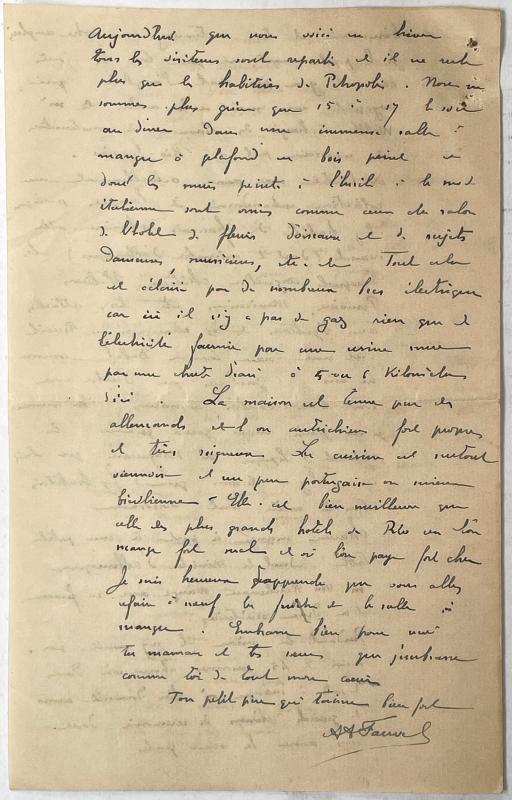 Aujourdhui que nous voici en hiver
tous les visiteurs sont repartis et il ne reste
plus que les habitués de Petropolis. Nous ne
sommes plus guère que 15 à 17 le soir
au diner dans une immense salle à
manger à plafond en bois peint et
dont les murs peints à l'huile à la mode
italienne sont ornés comme ceux du salon
de l'hotel de fleurs d'oiseaux et de sujets
danseurs, musiciens, etc. Tout cela
est éclairé par de nombreux becs électriques
car ici il n'y a pas de gaz rien que de
l'électricité fournie par une usine mue
par une chute d'eau à 5 ou 6 Kilomètres
d'ici. La maison est tenue par des
allemands et l'on autrichiens fort propres
et très soigneux. La cuisine est surtout
viennoise et un peu portugaise ou mieux
brésilienne - Elle est bien meilleure que
celle des plus grands hotels de Rio où l'on
mange fort mal et où l'on paye fort cher
Je suis heureux d'apprendre que vous allez
refaire à neuf la et la salle à
manger. Embrasse bien pour moi
ta maman et tes soeurs que j'embrasse
comme toi de tout mon coeur
Ton petit père qui t'aime bien fort